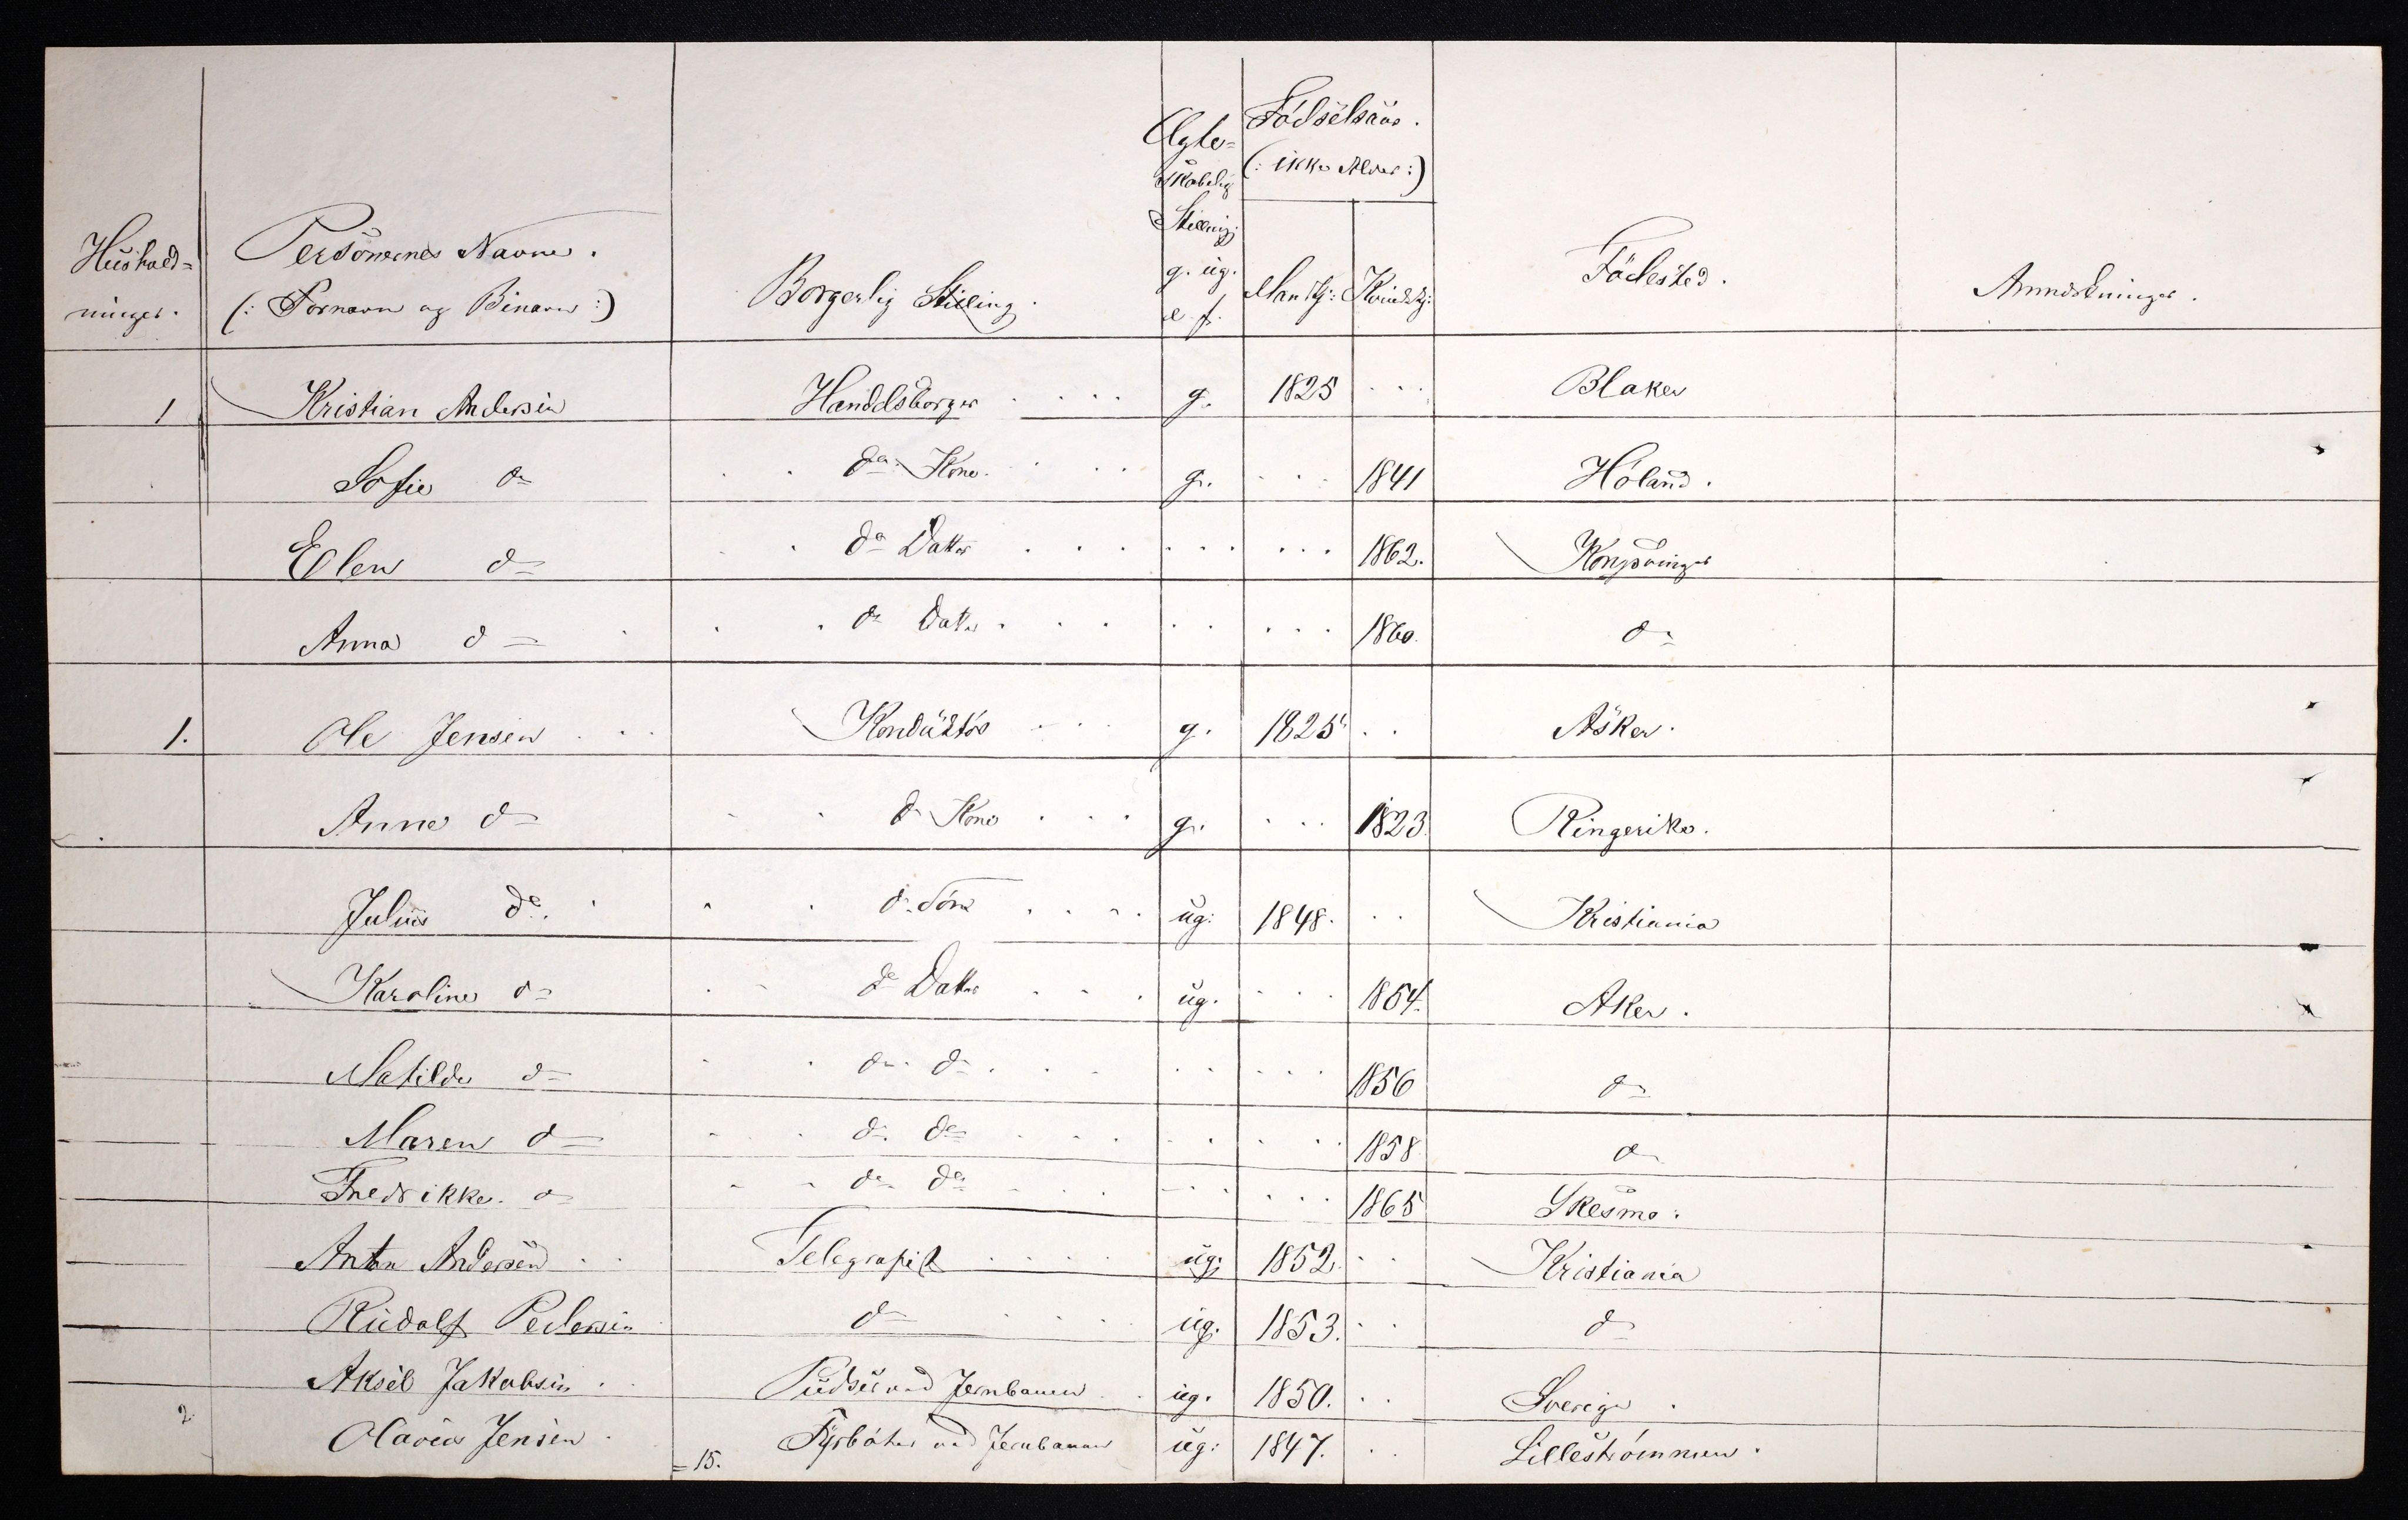 Hushold= Personernes Navne. Borgerlig Stilling. Ægte= Fødselsaar. Fødested. Anmerkninger.
ninger. (: Fornavn og Binavn :) skabelig (: ikke Alder :)
Stilling
g. ug. Mankj: Kvindekj:
e. f.
1 Kristian Andersen Handelsborger . . . . g. 1825 . . . Blaker
Sofie do . . ds Kone . . . . g. . . . 1841 Høland.
Elen do . . ds Datter . . . . . . . . . 1862. Kongsvinger
Anna do . . . ds Datter . . . . . . . . 1860. do
1. Ole Jensen . . . Konduktør . . . g. 1825 . . Asker.
Anne do . . ds Kone . . . g. . . . 1823. Ringerike.
Julius do . . . ds Søn . . . . ug: 1848. . . Kristiania
Karoline do . . ds Datter . . . ug. . . . 1854. Aker.
Matilde do . . ds do . . . . . . . . 1856 do
Maren do . . ds do . . . . . . . . 1858 do
Fredrikke do . . ds do . . . . . . . . 1865 Skesmo.
Anton Andersen . . Telegrafist . . . . . ug: 1852. . . Kristiania
Rudolf Pedersen do . . . . ug. 1853. . . do
Aksel Jakobsen . . Pudser ved Jernbanen . . ug. 1850. . . Sverige .
2. Olavus Jensen . =15. Fyrbøter ved Jernbanen ug: 1847. . . Lillestrømmen.